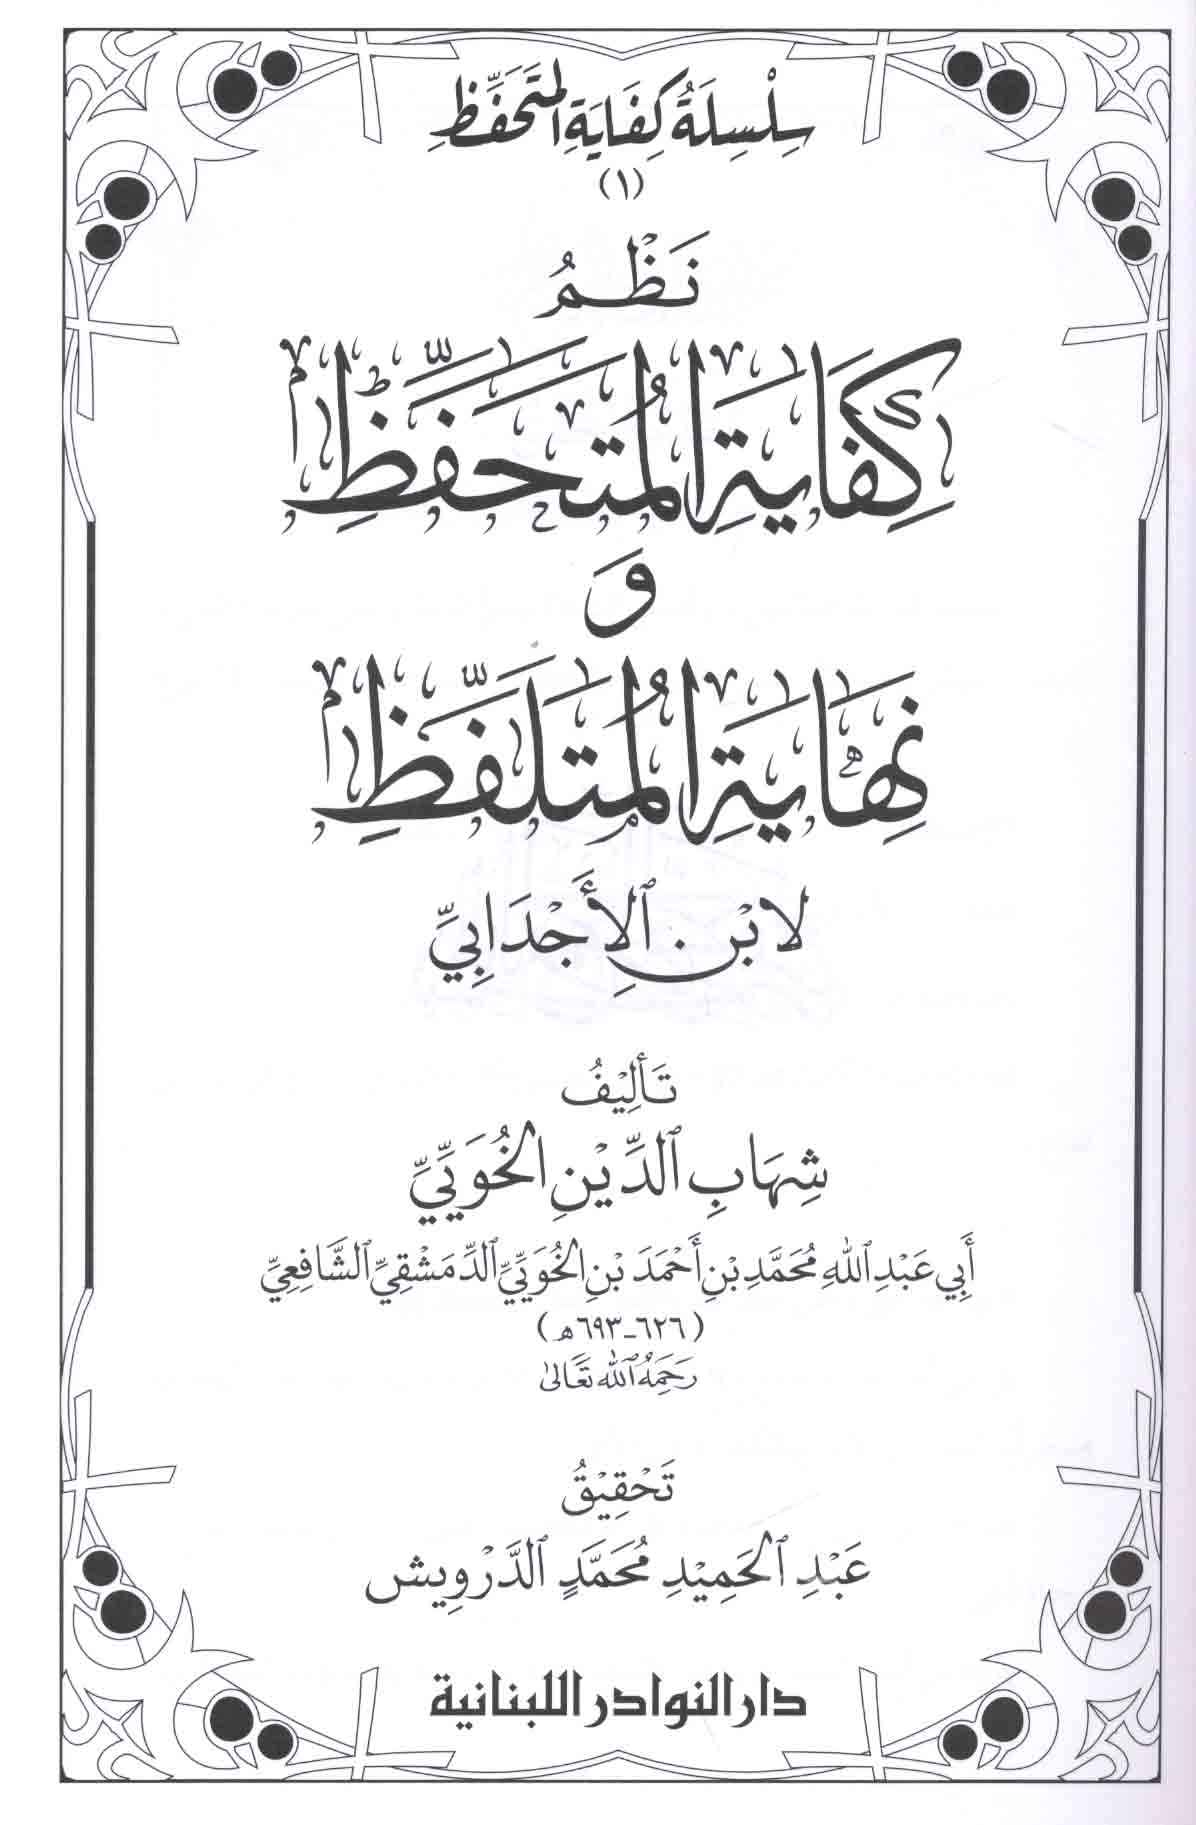 سِلْسِلَةُ كِفَايَةِ المُتَحَفِّظِ
(١)
نَظْمُ
كِفَايَةِ المُتَحَفِّظِ
وَ
نِهَايَةِ المُتَلَفِّظِ
لابْنِ الأَجْدَابِيِّ
تَأْلِيْفُ
شِهَابِ الدِّيْنِ الخُوَيِّيِّ
أَبِي عَبْدِ اللهِ مُحَمَّدِ بْنِ أَحْمَدَ بْنِ الخُوَيِّيِّ الدِّمَشْقِيِّ الشَّافِعِيِّ
(٦٢٦-٦٩٣هـ)
رَحِمَهُ اللهُ تَعَالَى
تَحْقِيْقُ
عَبْدِ الحَمِيْدِ مُحَمَّدٍ الدَّرْوِيش
دار النوادر اللبنانية